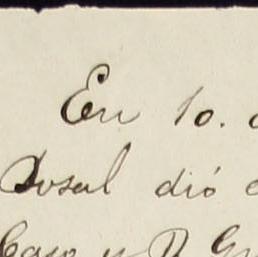 En 10.
Dosal dió
Caso y D.